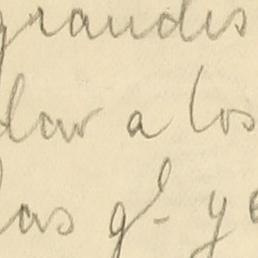 grandes
dar a los
las gl- ye